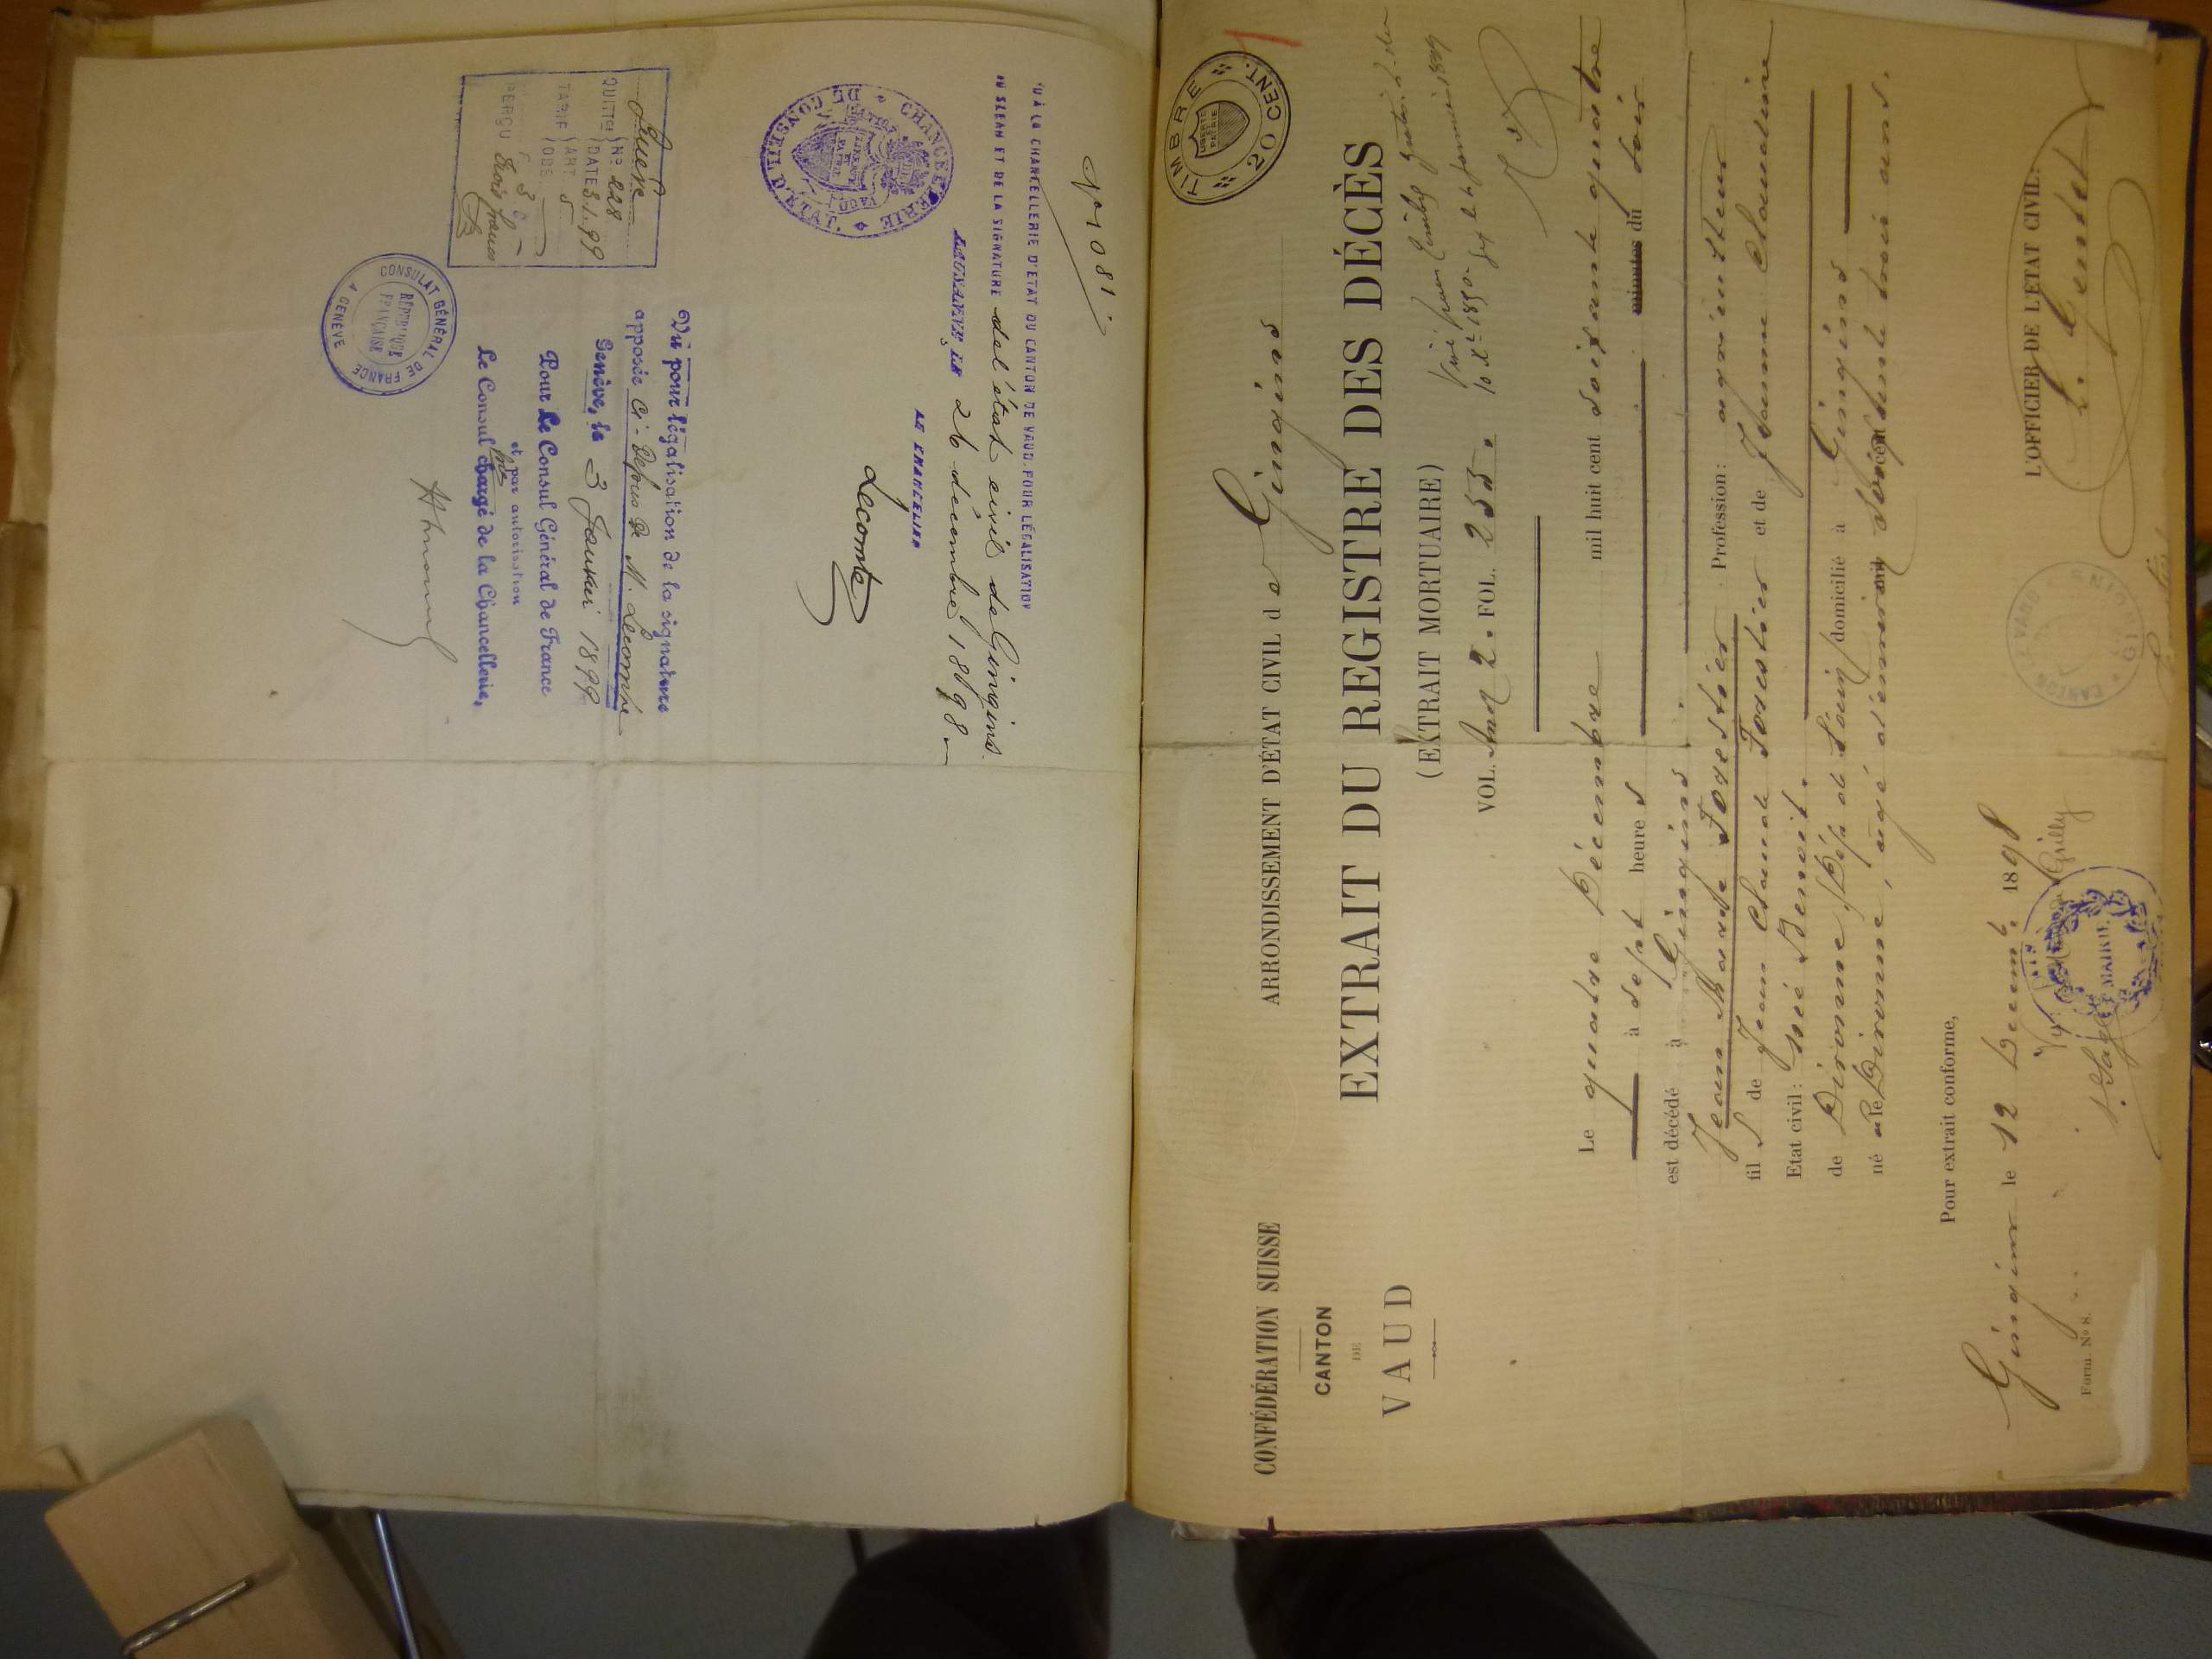 No 1081
VU À LA CHANCELLERIE D'ÉTAT DU CANTON DE VAUD, POUR LÉGALISATION
DU SCEAU ET DE LA SIGNATURE de l'état civil de Gingins.
LAUSANNE, LE 26 décembre 1898
LE CHANCELIER
Lecomte
CHANCELLERIE DU CONSEIL D'ÉTAT
LIBERTÉ ET PATRIE
VAUD
Vu pour légalisation de la signature
apposée ci-dessus de M. Lecomte
Genève, le 3 Janvier 1899
Pour Le Consul Général de France
et par autorisation
Le Consul chargé de la Chancellerie,
QUITTCE Nº 228
DATE 3.1.99
TARIF ART. 5
OBS.
PERÇU F 3
trois francs
CONSULAT GÉNÉRAL DE FRANCE
A GENÈVE
RÉPUBLIQUE FRANÇAISE
TIMBRE
20 CENT.
LIBERTÉ PATRIE
CONFÉDÉRATION SUISSE
CANTON
DE
VAUD
ARRONDISSEMENT D'ÉTAT CIVIL de Gingins
EXTRAIT DU REGISTRE DES DÉCÈS
(EXTRAIT MORTUAIRE)
VOL. 2. FOL. 253.
Le quatre Décembre mil huit cent soixante quatre
à sept heures minutes du soir
est décédé à Gingins
Jean Marie Forestier Profession: agriculteur
fils de Jean Claude Forestier et de Jeanne Claudine
Etat civil: née Benoit.
de Divonne, domicilié à Gingins
né le Divonne, agé d'environ soixante trois ans.
Pour extrait conforme,
Gingins le 12 Décemb. 1898
L'OFFICIER DE L'ÉTAT CIVIL:
CANTON DE VAUD
GINGINS
MAIRIE
Form. Nº 8.